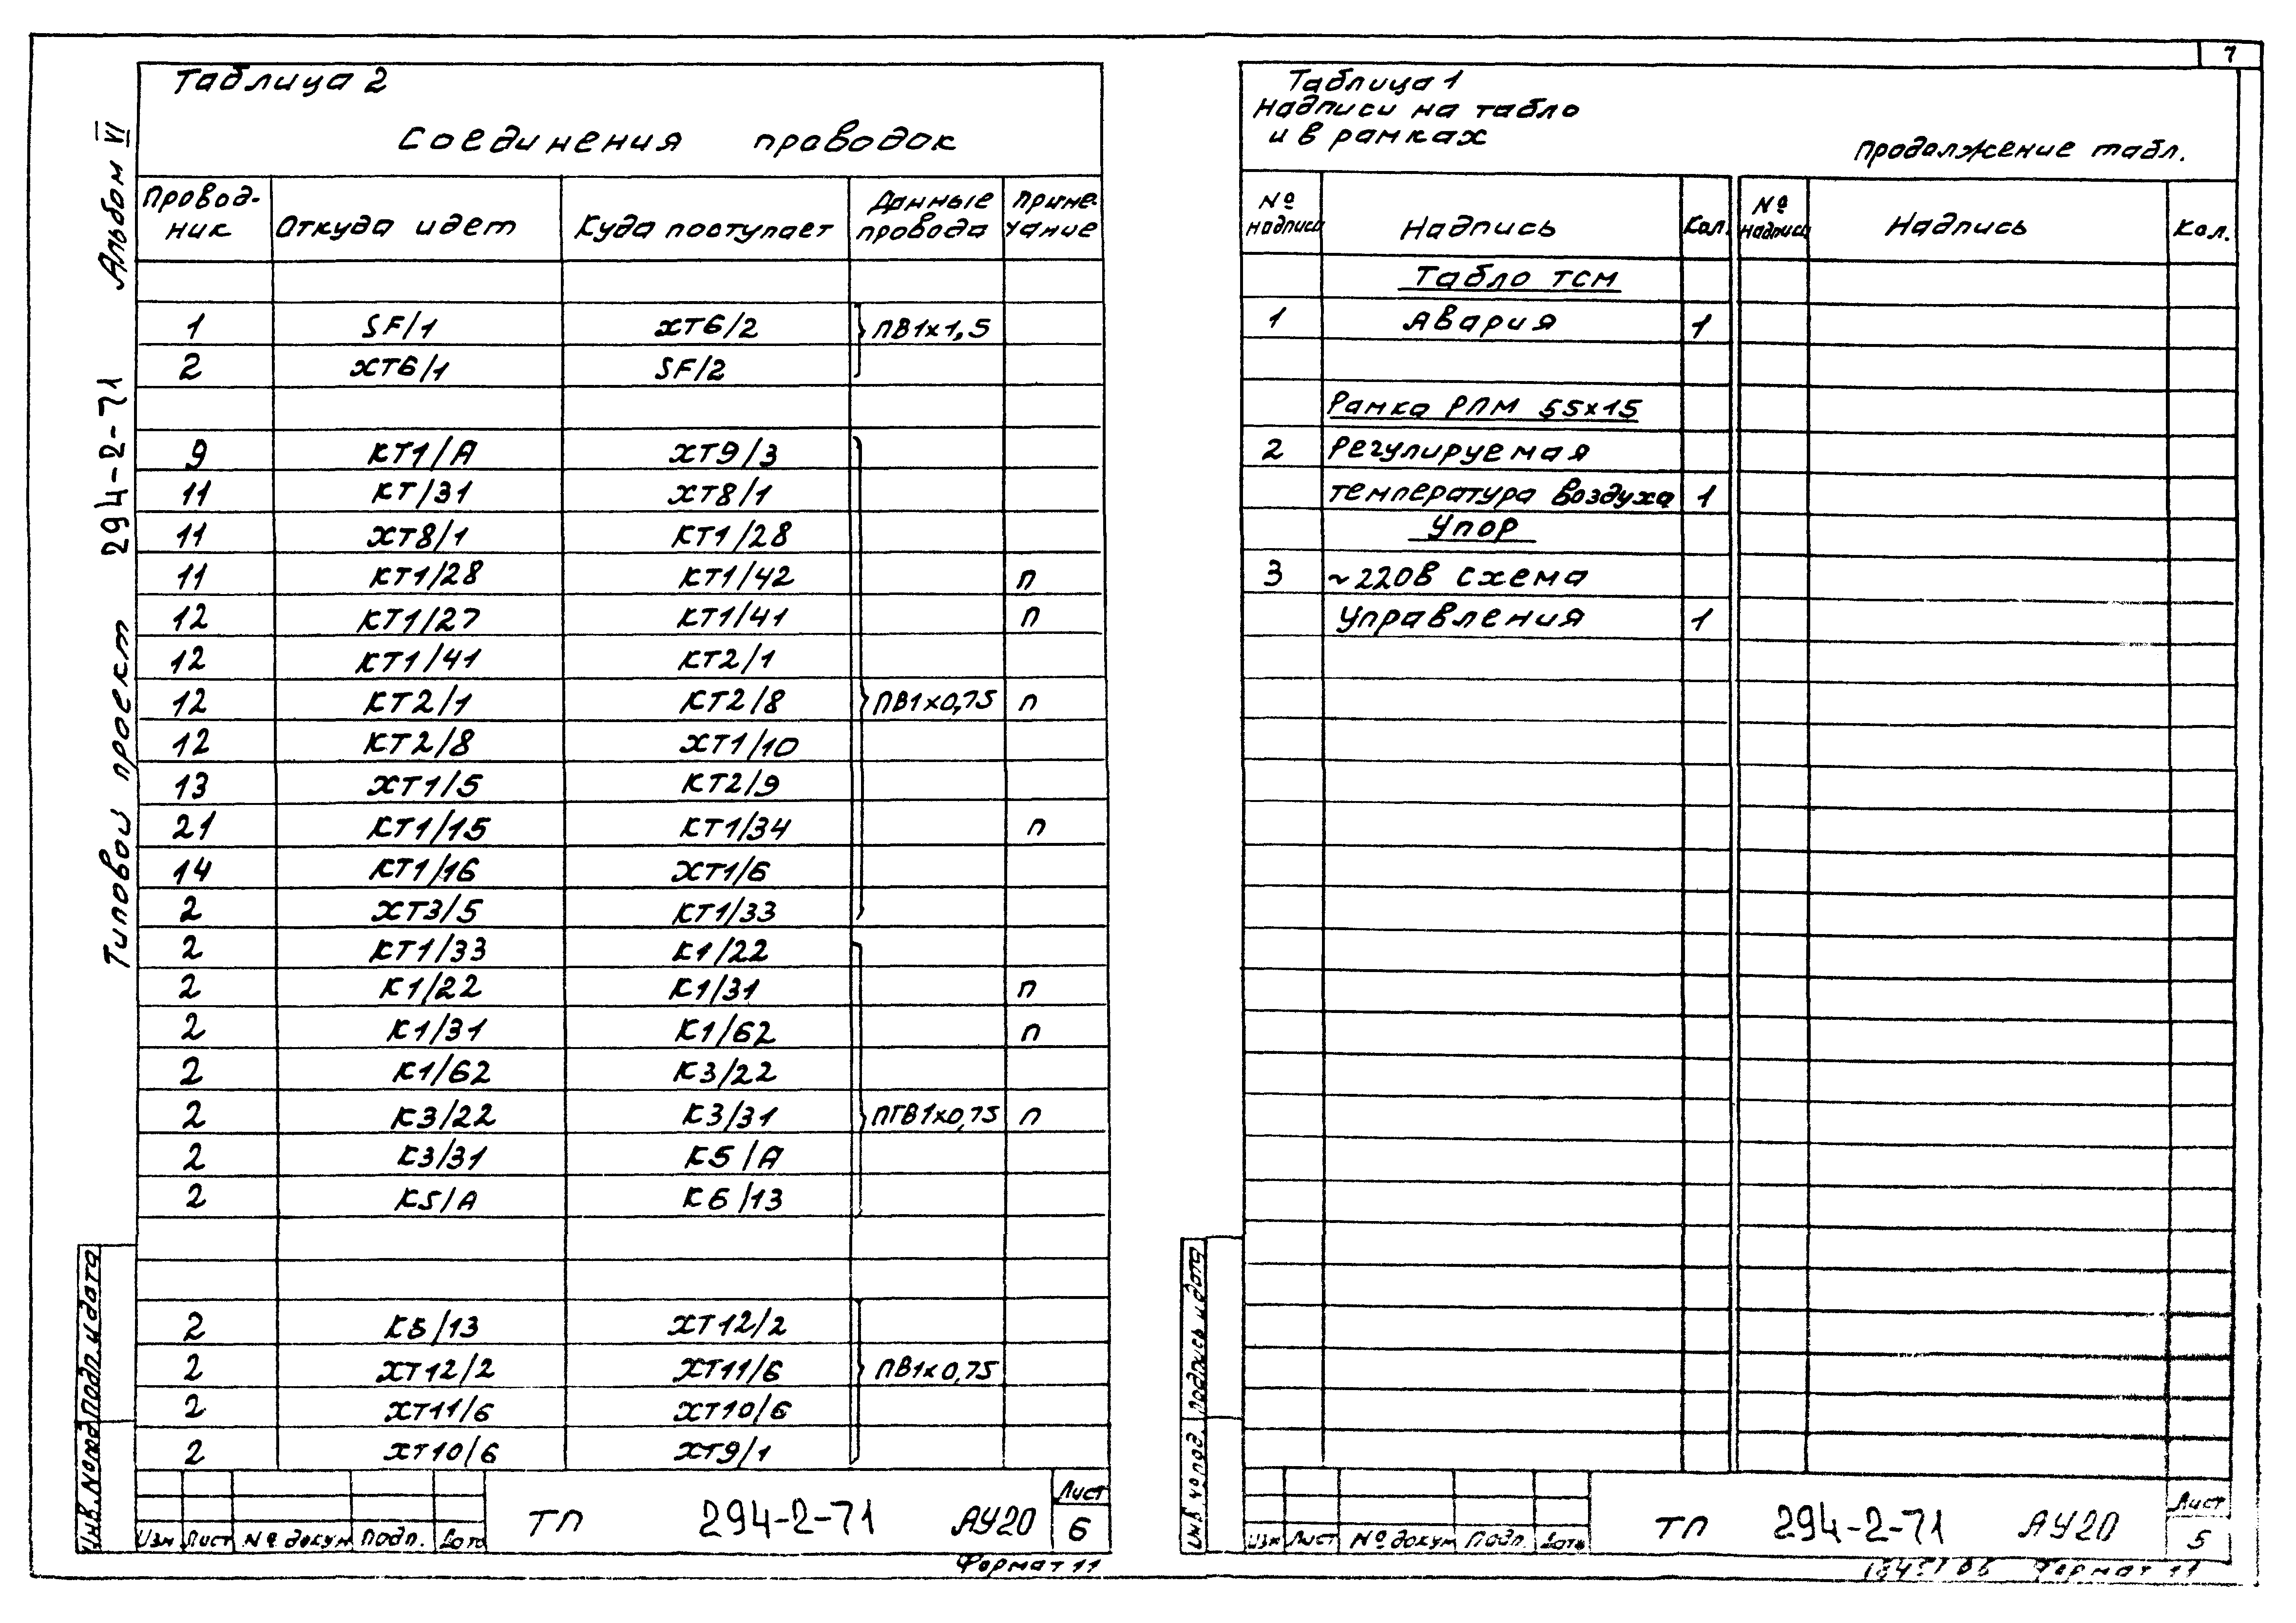 7
Альбом VI
Типовой проект 294-2-71
Таблица 2
Соединения проводок
Провод-ник Откуда идет Куда поступает Данные провода Приме-чание
1 SF/1 XT6/2 ПВ1х1,5
2 XT6/1 SF/2
9 KT1/A XT9/3
11 KT/31 XT8/1
11 XT8/1 KT1/28
11 KT1/28 KT1/42 п
12 KT1/27 KT1/41 п
12 KT1/41 KT2/1
12 KT2/1 KT2/8 ПВ1х0,75 п
12 KT2/8 XT1/10
13 XT1/5 KT2/9
21 KT1/15 KT1/34 п
14 KT1/16 XT1/6
2 XT3/5 KT1/33
2 KT1/33 K1/22
2 K1/22 K1/31 п
2 K1/31 K1/62 п
2 K1/62 K3/22
2 K3/22 K3/31 ПГВ1х0,75 п
2 K3/31 K5/A
2 K5/A K6/13
2 K6/13 XT12/2
2 XT12/2 XT11/6 ПВ1х0,75
2 XT11/6 XT10/6
2 XT10/6 XT9/1
Инв. № подл. Подп. и дата
Изм Лист № докум Подп. Дата
ТП 294-2-71 АУ20
Лист
6
Формат 11
Таблица 1
Надписи на табло
и в рамках
Продолжение табл.
№ надписи Надпись Кол. № надписи Надпись Кол.
Табло ТСМ
1 Авария 1
Рамка РПМ 55х15
2 Регулируемая
температура воздуха 1
Упор
3 ~220В схема
управления 1
Инв. № под. Подпись и дата
Изм Лист № докум Подп. Дата
ТП 294-2-71 АУ20
Лист
5
Формат 11